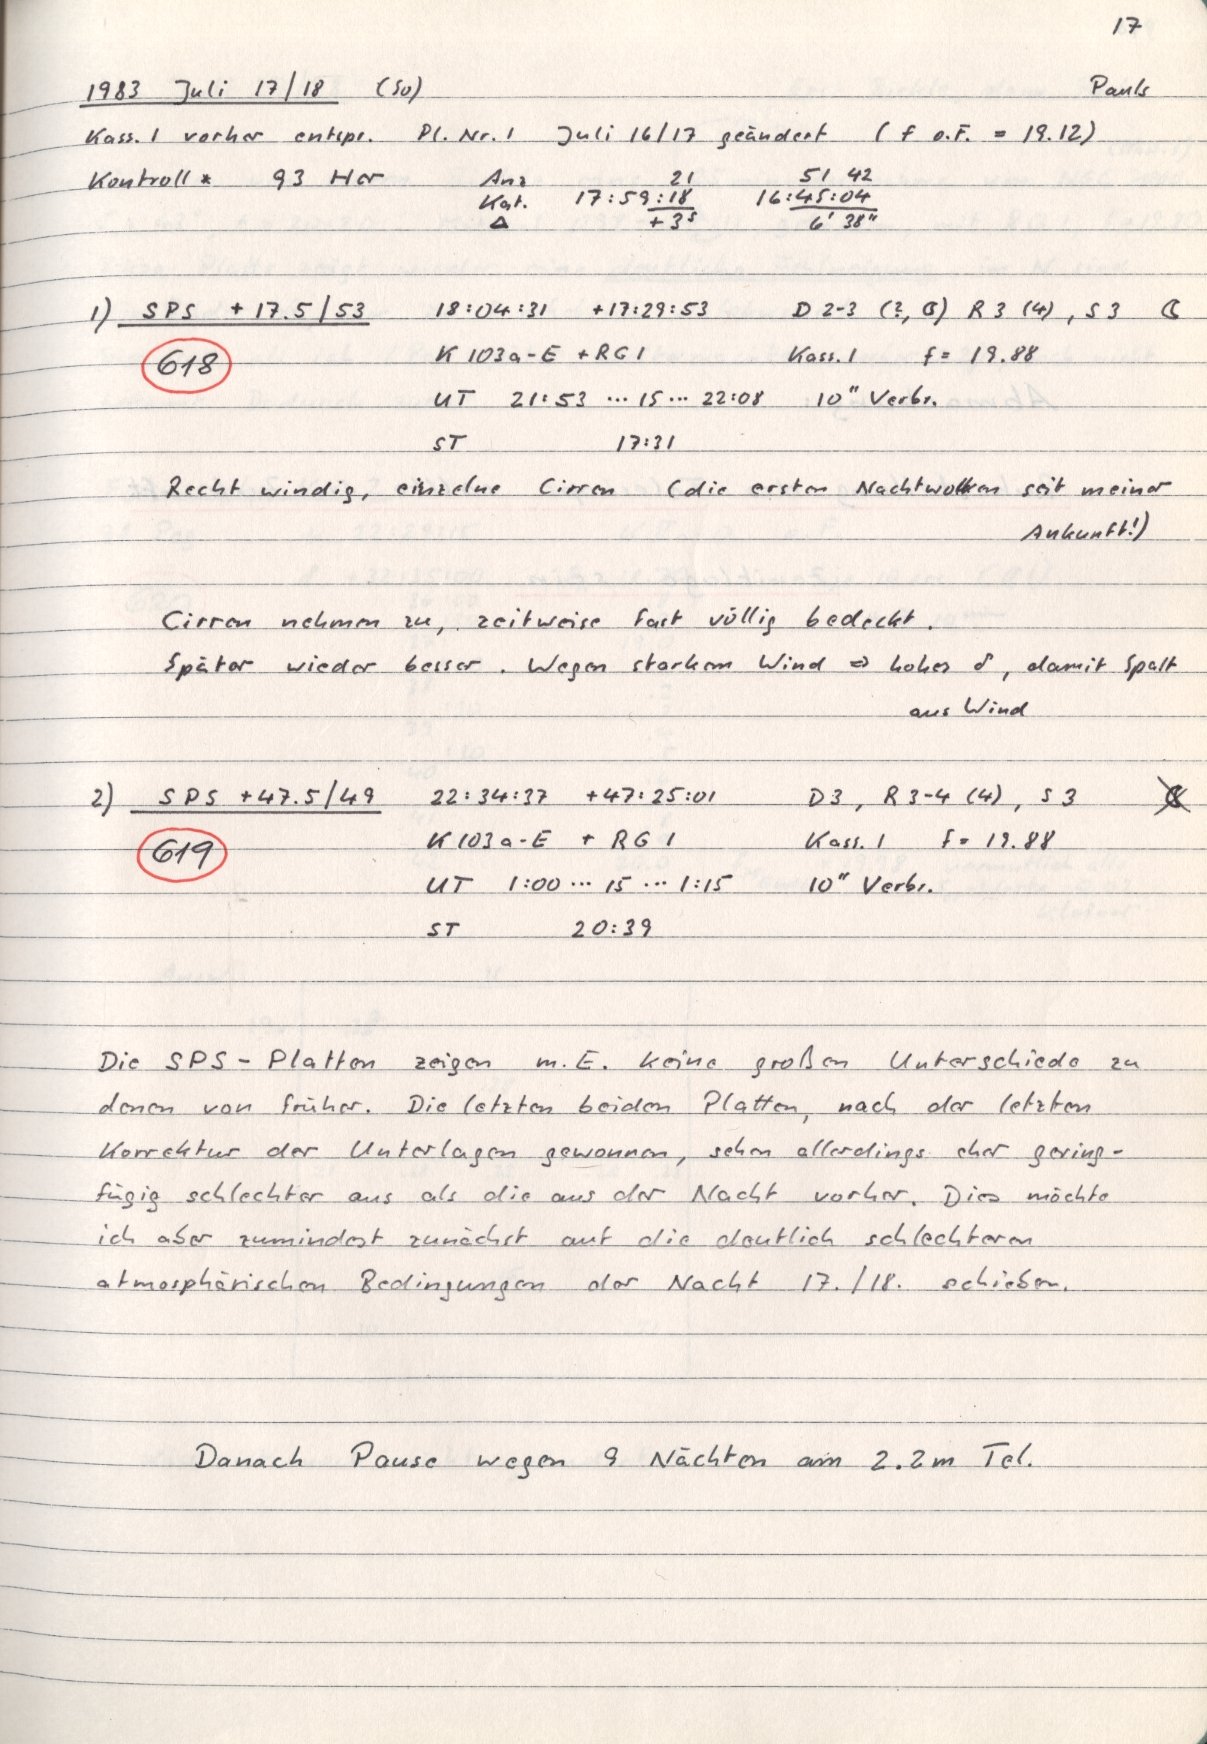 17
1983 Juli 17/18 (So) Pauls
Kass. 1 vorher entspr. Pl. Nr. 1 Juli 16/17 geändert (f o.F. = 19.12)
Kontroll * 93 Her Anz 21 51 42
Kat. 17:59:18 16:45:04
Δ +3s 6' 38"
1) SPS +17.5/53 18:04:31 +17:29:53 D 2-3 (?, ☾) R 3 (4), S 3 ☾
618 K 103a-E + RG1 Kass. 1 f = 19.88
UT 21:53 ... 15 ... 22:08 10" Verbr.
ST 17:31
Recht windig, einzelne Cirren (die ersten Nachtwolken seit meiner
Ankunft!)
Cirren nehmen zu, zeitweise fast völlig bedeckt.
Später wieder besser. Wegen starkem Wind ⇒ hohes δ, damit Spalt
aus Wind
2) SPS +47.5/49 22:34:37 +47:25:01 D3, R 3-4 (4), S 3
619 K 103a-E + RG 1 Kass. 1 f = 19.88
UT 1:00 ... 15 ... 1:15 10" Verbr.
ST 20:39
Die SPS-Platten zeigen m.E. keine großen Unterschiede zu
denen von früher. Die letzten beiden Platten, nach der letzten
Korrektur der Unterlagen gewonnen, sehen allerdings eher gering-
fügig schlechter aus als die aus der Nacht vorher. Dies möchte
ich aber zumindest zunächst auf die deutlich schlechteren
atmosphärischen Bedingungen der Nacht 17./18. schieben.
Danach Pause wegen 9 Nächten am 2.2m Tel.